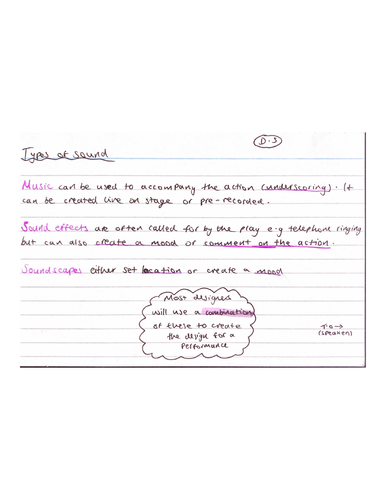 D.S
Types of sound
Music can be used to accompany the action (underscoring). It
can be created live on stage or pre-recorded.
Sound effects are often called for by the play e.g telephone ringing
but can also create a mood or comment on the action.
Soundscapes either set location or create a mood
Most designs
will use a combination
of these to create
the design for a
performance
T.O →
(speakers)